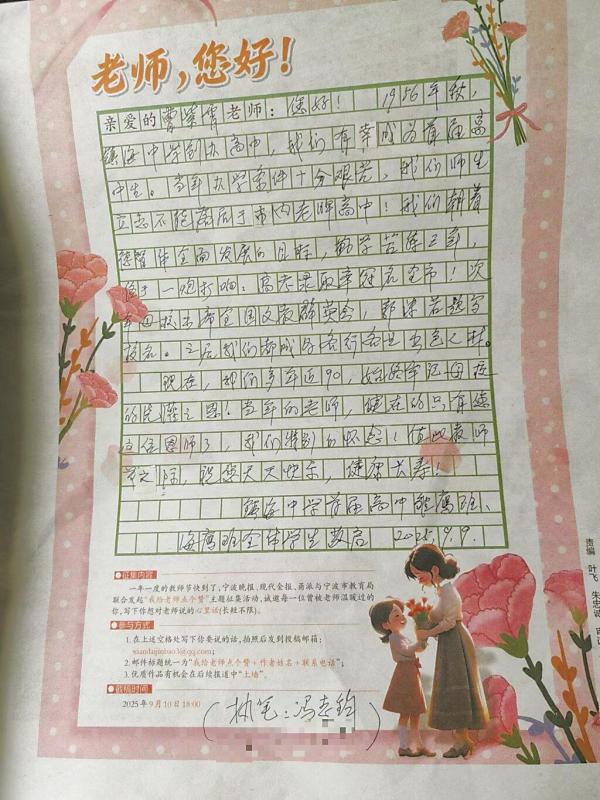 老师，您好！
亲爱的曹溪霄老师：您好！ 1956年秋，
镇海中学创办高中，我们有幸成为首届高
中生。当年办学条件十分艰苦，我们师生
立志不能落后于市内老牌高中！我们朝着
德智体全面发展的目标，勤学苦练三年，
终于一炮打响：高考录取率冠名全市！次
年母校出席全国文教群英会，郭沫若题写
校名。之后我们都成为各行各业出色人材。
现在，我们多年近90，始终牢记母校
的先泽之恩！当年的老师，健在的只有您
这位恩师了，我们特别的怀念！值此教师
节之际，祝您天天快乐，健康长寿！
镇海中学首届高中雏鹰班、
海鹰班全体学生敬启 2025.9.9.
责编 叶飞 朱忠诚
●征集内容
一年一度的教师节快到了，宁波晚报、现代金报、甬派与宁波市教育局
联合发起“我给老师点个赞”主题征集活动，诚邀每一位曾被老师温暖过的
你，写下你想对老师说的心里话（长短不限）。
●参与方式
1.在上述空格处写下你要说的话，拍照后发到投稿邮箱：
xiandaijinbao1@qq.com；
2.邮件标题统一为“我给老师点个赞+作者姓名+联系电话”；
3.优质作品有机会在后续报道中“上墙”。
●截稿时间
2025年9月10日18:00
（执笔：冯志钧）